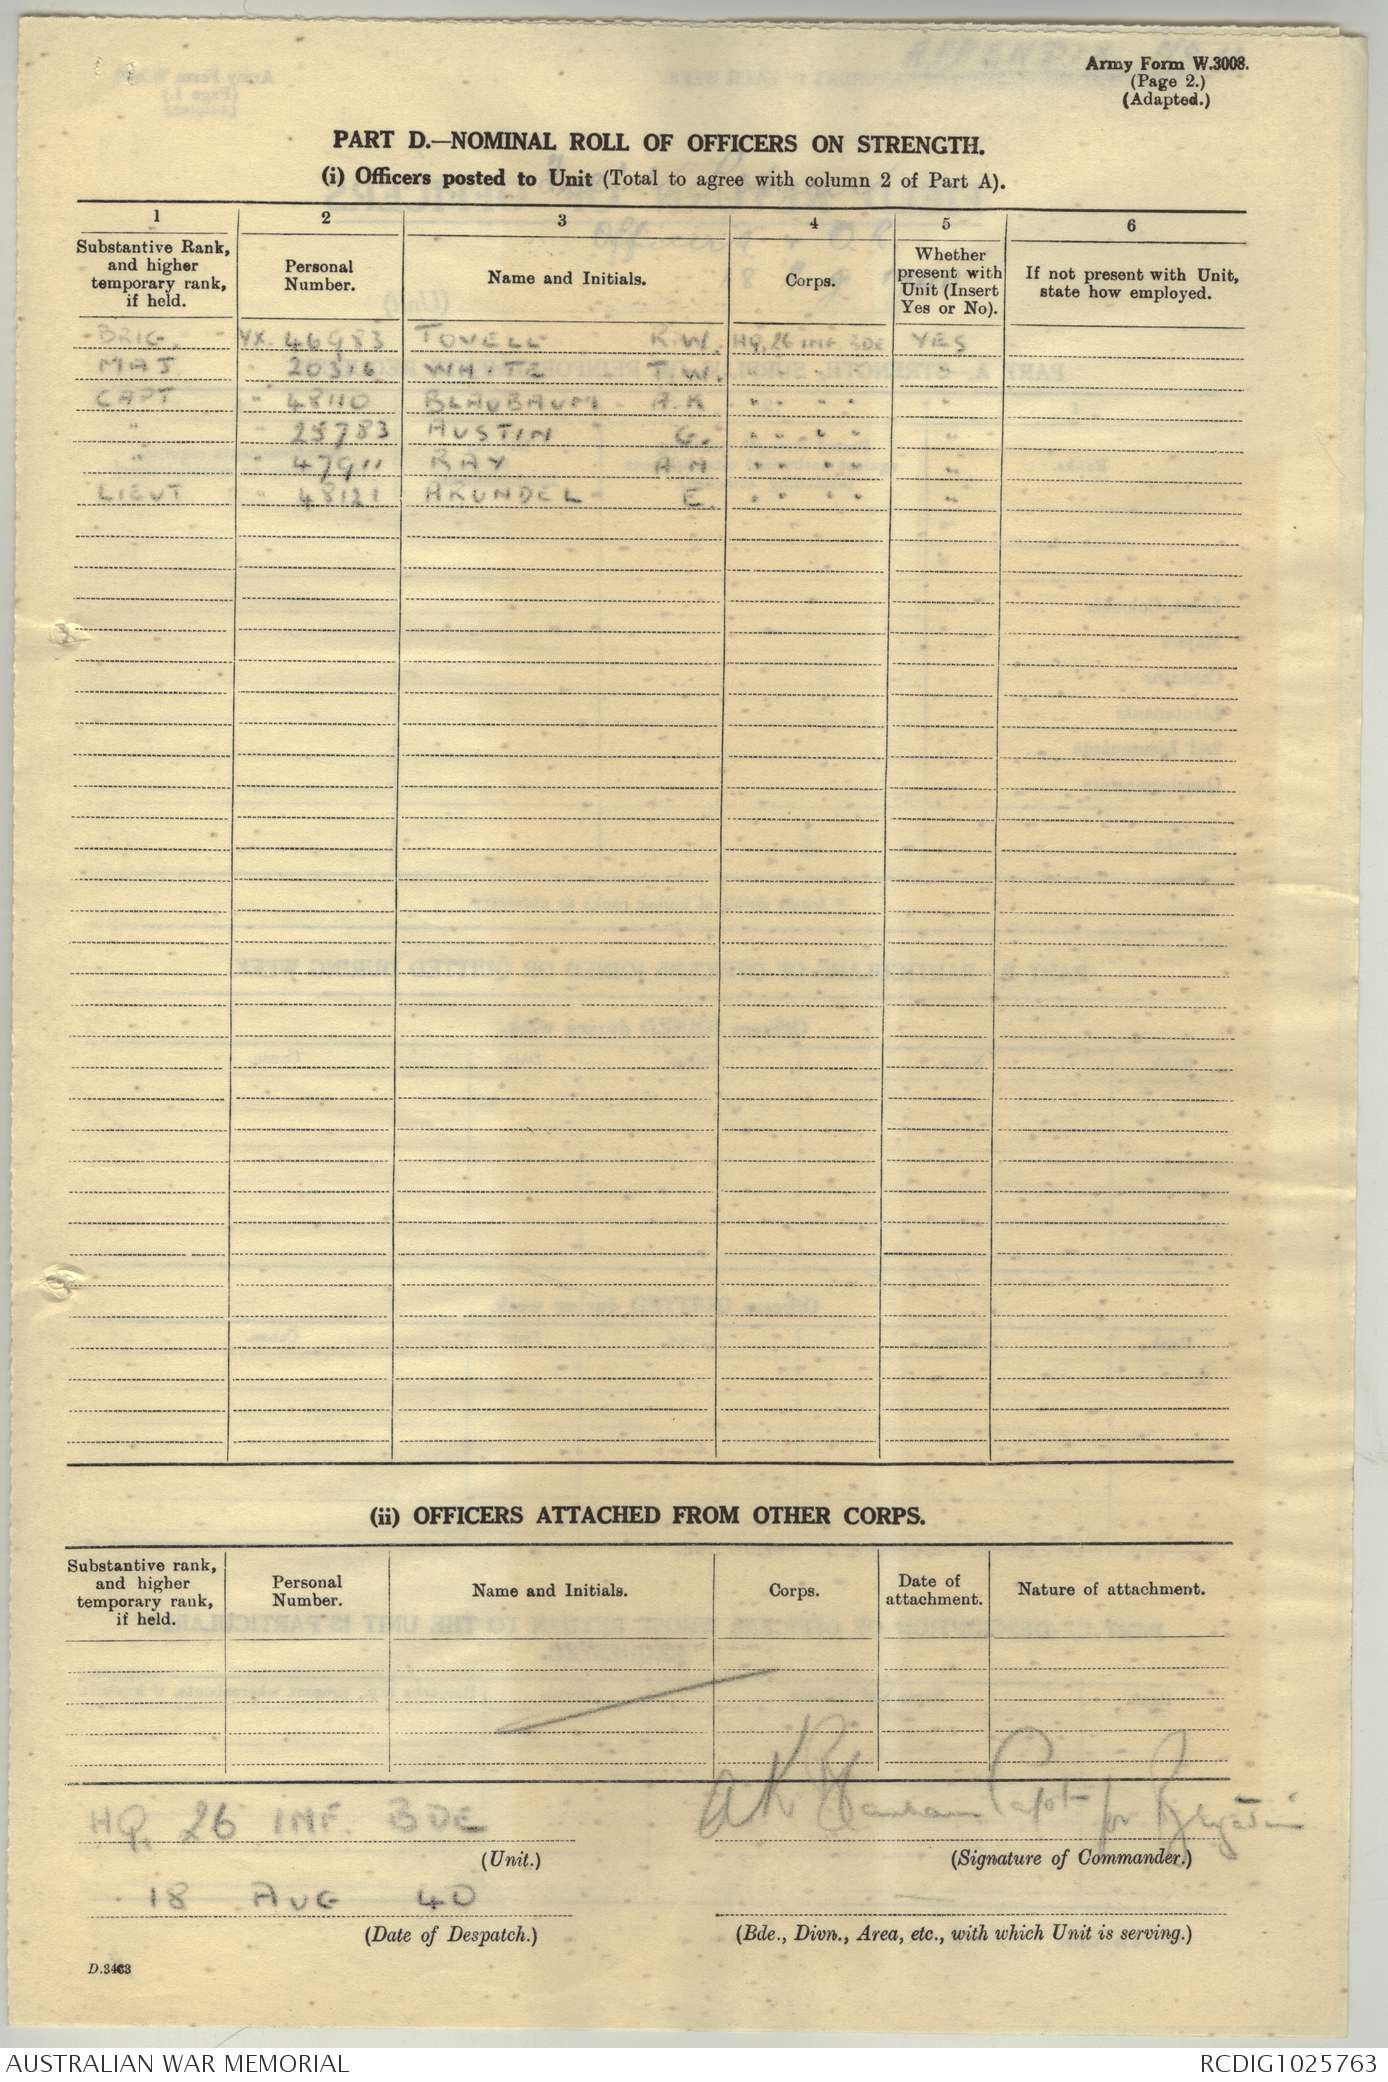 Army Form W.3008.
(Page 2.)
(Adapted.)
PART D.—NOMINAL ROLL OF OFFICERS ON STRENGTH.
(i) Officers posted to Unit (Total to agree with column 2 of Part A).
1 2 3 4 5 6
Substantive Rank, and higher temporary rank, if held. Personal Number. Name and Initials. Corps. Whether present with Unit (Insert Yes or No). If not present with Unit, state how employed.
BRIG. VX. 46983 TOVELL R.W. HQ, 26 INF BDE YES
MAJ " 20316 WHITE T.W. " " " " "
CAPT " 48110 BLAUBAUM A.K " " " " "
" " 25783 AUSTIN G. " " " " "
" " 47911 RAY A M " " " " "
LIEUT " 48121 ARUNDEL E. " " " " "
(ii) OFFICERS ATTACHED FROM OTHER CORPS.
Substantive rank, and higher temporary rank, if held. Personal Number. Name and Initials. Corps. Date of attachment. Nature of attachment.
HQ, 26 INF. BDE
AK Blaubaum Capt for Brigadier
(Unit.) (Signature of Commander.)
18 AUG 40
(Date of Despatch.) (Bde., Divn., Area, etc., with which Unit is serving.)
D.3463
AUSTRALIAN WAR MEMORIAL RCDIG1025763